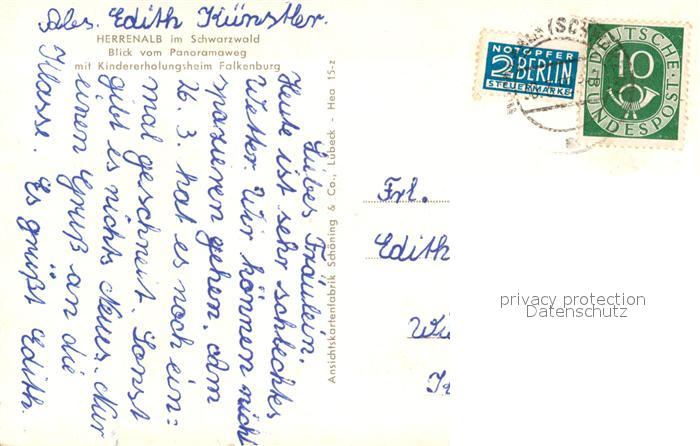 Abs. Edith Künstler.
HERRENALB im Schwarzwald
Blick vom Panoramaweg
mit Kindererholungsheim Falkenburg
Liebes Fräulein.
Heute ist sehr schlechtes
Wetter. Wir können nicht
spazieren gehen. Am
26. 3. hat es noch ein=
mal geschneit. Sonst
gibt es nichts Neues. Nur
einen Gruß an die
Klasse. Es grüßt Edith.
Ansichtskartenfabrik Schöning & Co., Lübeck - Hea 15-z
NOTOPFER
2 BERLIN
STEUERMARKE
DEUTSCHE
10
BUNDESPOST
Frl.
Edith
privacy protection
Datenschutz